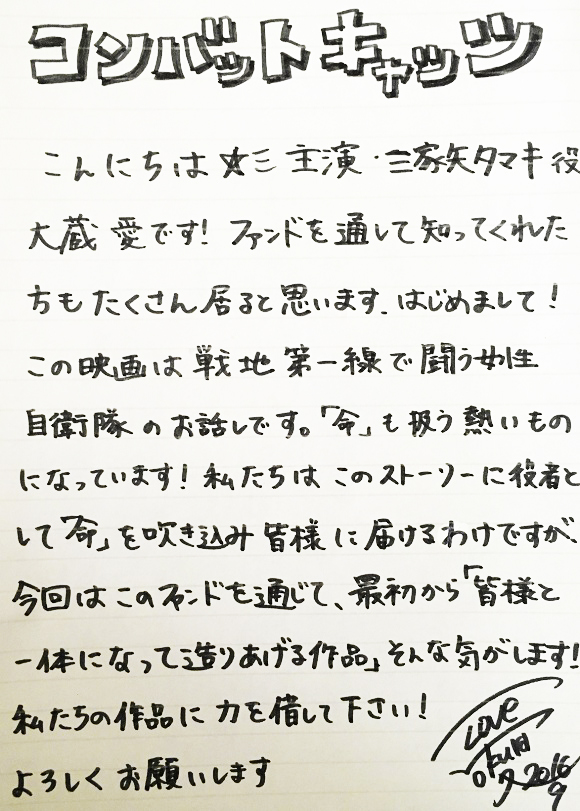 コンバットキャッツ
こんにちは☆三 主演・三家矢タマキ役
大蔵 愛です! ファンドを通して知ってくれた
方もたくさん居ると思います. はじめまして!
この映画は戦地第一線で闘う女性
自衛隊のお話しです。「命」も扱う熱いもの
になっています! 私たちはこのストーリーに役者と
して「命」を吹き込み皆様に届けるわけですが、
今回はこのファンドを通じて、最初から「皆様と
一体になって造りあげる作品」そんな気がします!
私たちの作品に力を借して下さい!
よろしくお願いします
Love
2016
9